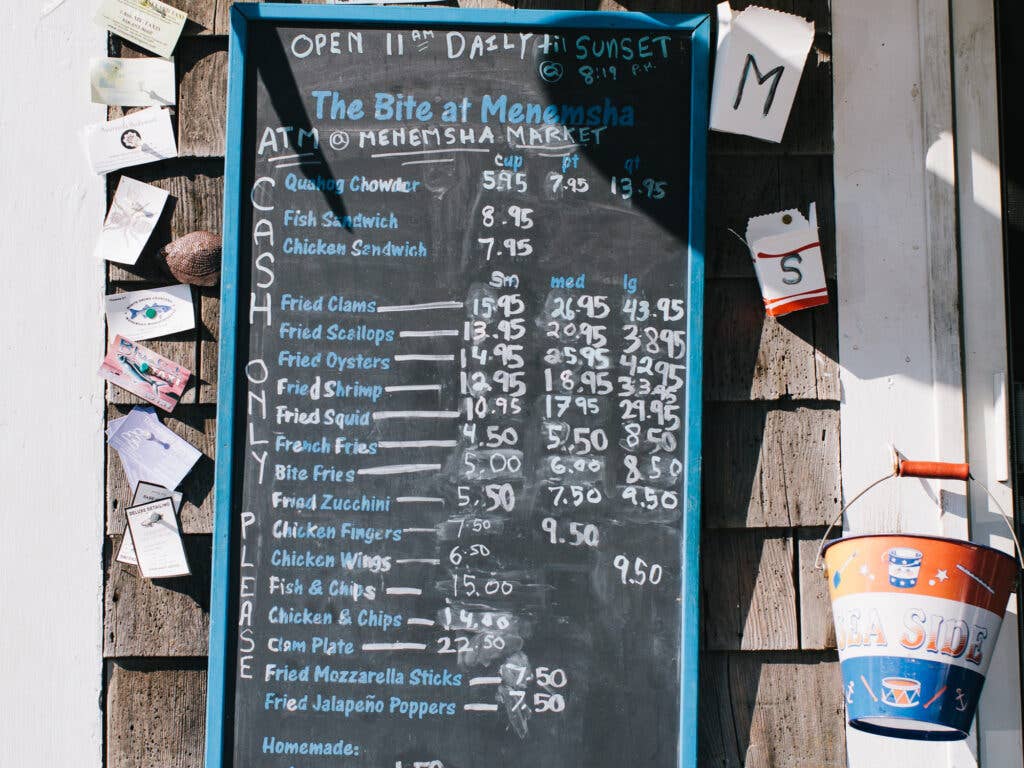 OPEN 11 AM DAILY til SUNSET
@ 8:19 P.M.
The Bite at Menemsha
ATM @ MENEMSHA MARKET
CASH ONLY PLEASE
cup pt qt
Quahog Chowder 5.95 7.95 13.95
Fish Sandwich 8.95
Chicken Sandwich 7.95
sm med lg
Fried Clams 15.95 26.95 43.95
Fried Scallops 13.95 20.95 38.95
Fried Oysters 14.95 25.95 42.95
Fried Shrimp 12.95 18.95 33.95
Fried Squid 10.95 17.95 29.95
French Fries 4.50 5.50 8.50
Bite Fries 5.00 6.00 8.50
Fried Zucchini 5.50 7.50 9.50
Chicken Fingers 7.50 9.50
Chicken Wings 6.50 9.50
Fish & Chips 15.00
Chicken & Chips 14.00
Clam Plate 22.50
Fried Mozzarella Sticks 7.50
Fried Jalapeño Poppers 7.50
Homemade:
M
S
SEA SIDE
DELUXE DETAILING